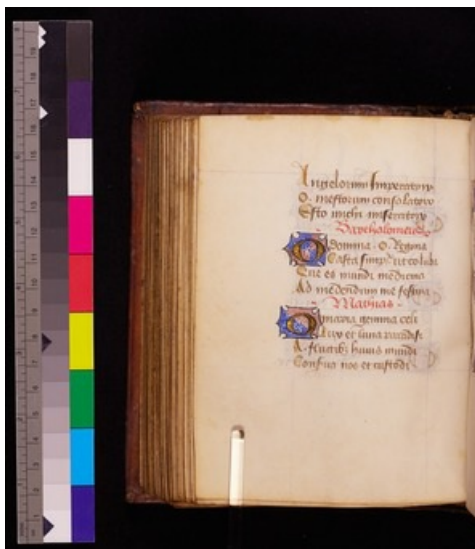 Angelorum Imperatrix
O. mestorum consolatrix
Esto michi miseratrix
Bartholomeus
O domina. O. Regina
Casta simplex ut columba
Que es mundi medicina
Ad medendum me festina
Mathias
O maria gemma celi
et luna
A fluctibz huius mundi
nos et custodi